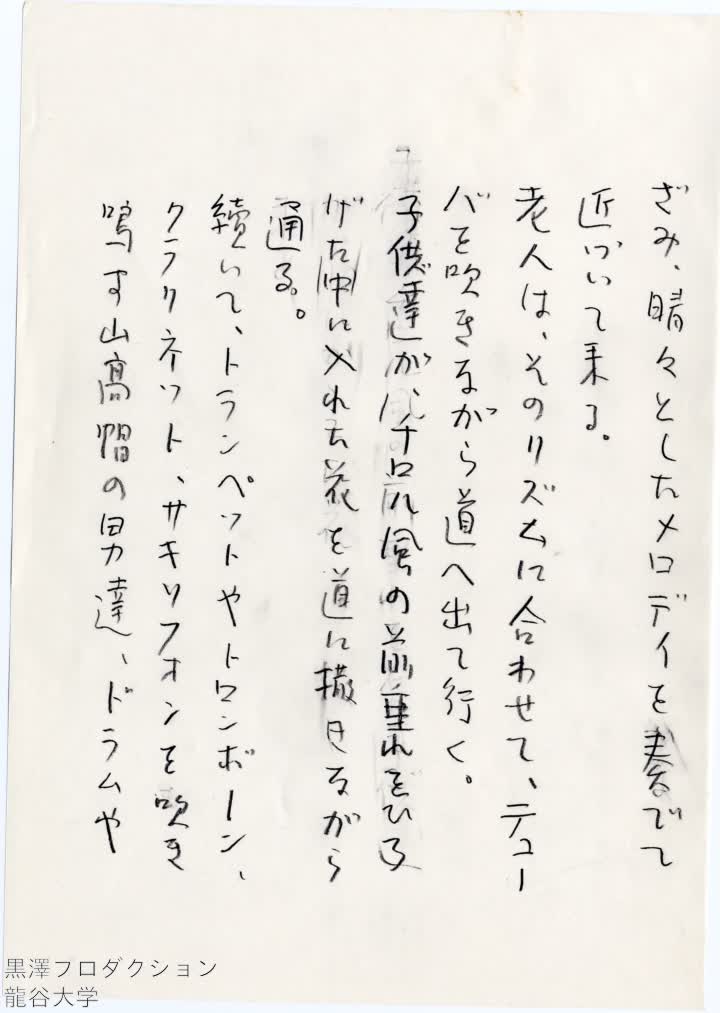 ざみ、晴々としたメロディを奏でて
近づいて来る。
老人は、そのリズムに合わせて、テュー
バを吹きながら道へ出て行く。
子供達が、チロル風の前垂れをひろ
げた中に入れた花を道に撒きながら
通る。
続いて、トランペットやトロンボーン、
クラリネット、サキソフォンを吹き
鳴す山高帽の男達、ドラムや
黒澤プロダクション
龍谷大学